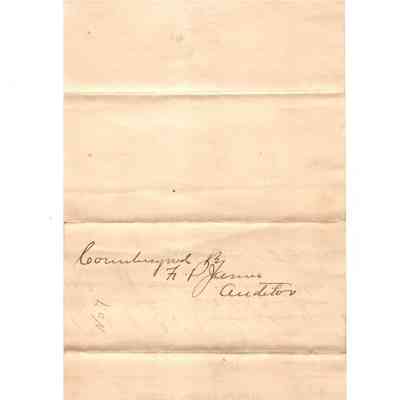 Countersigned By
F. P. James
Auditor
No 7